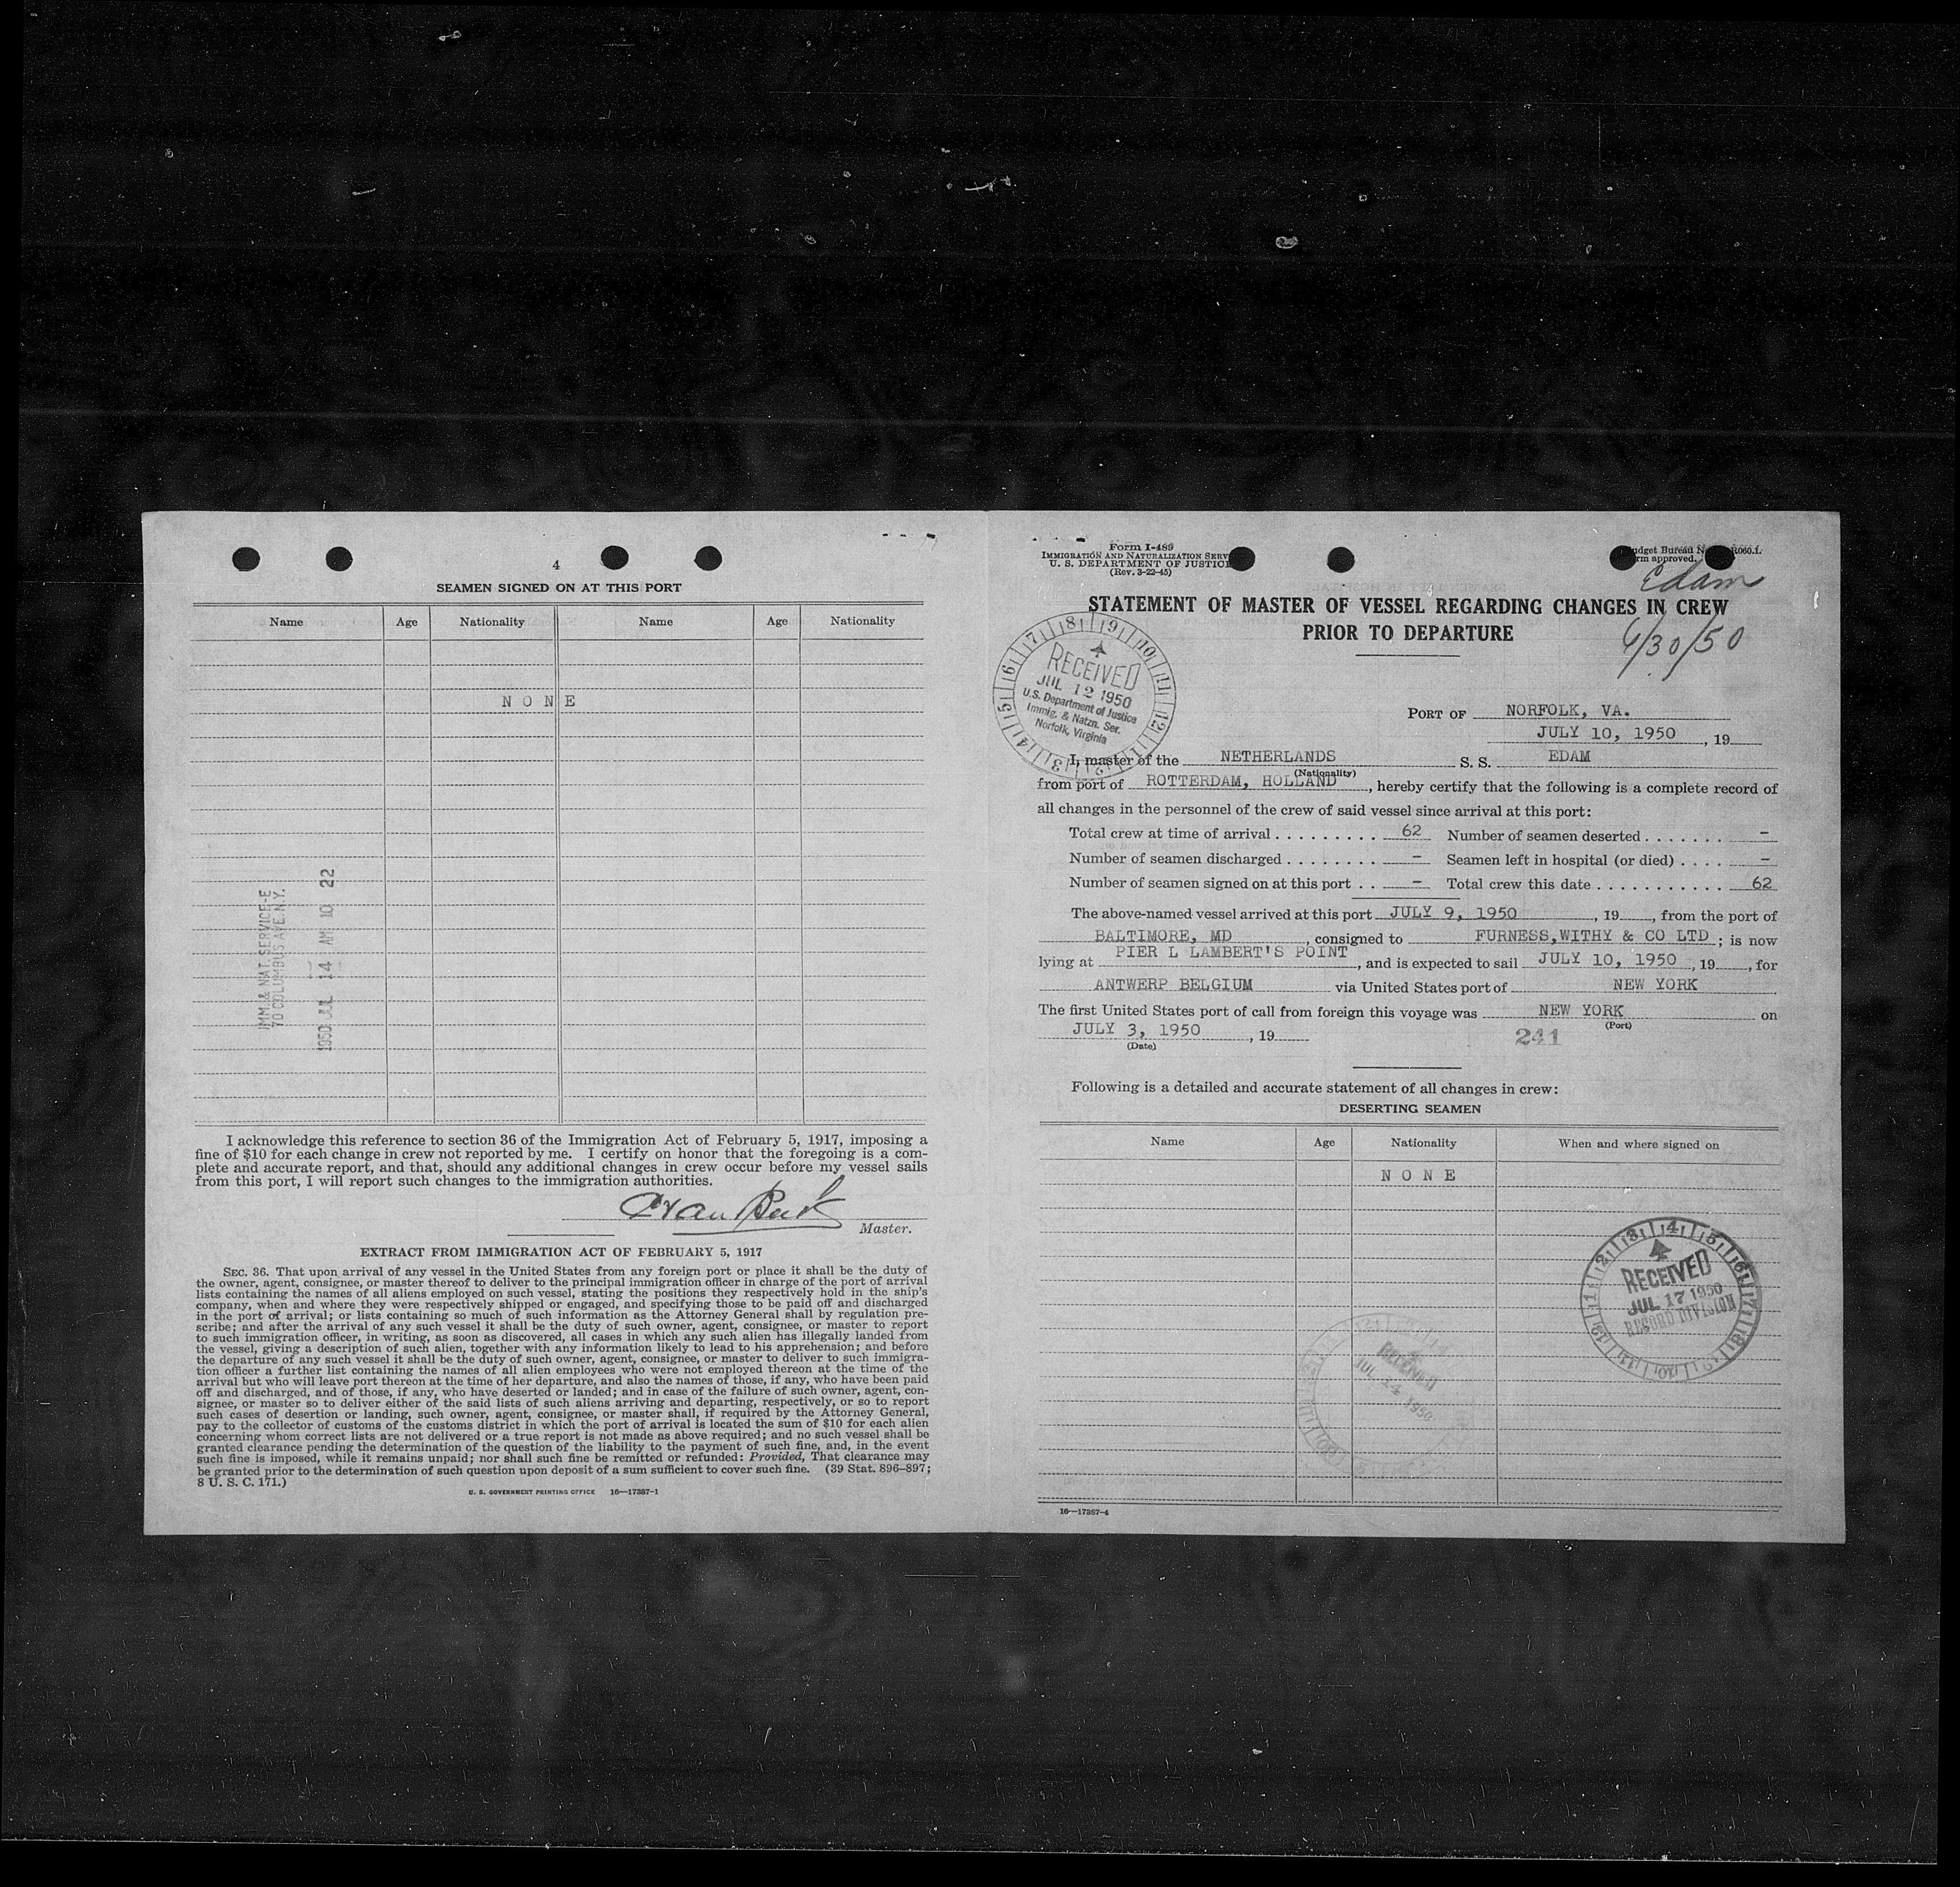 4
SEAMEN SIGNED ON AT THIS PORT
Name Age Nationality Name Age Nationality
N O N E
IMM. & NAT. SERVICE-E
70 COLUMBUS AVE. N.Y.
1950 JUL 14 AM 10 22
I acknowledge this reference to section 36 of the Immigration Act of February 5, 1917, imposing a
fine of $10 for each change in crew not reported by me. I certify on honor that the foregoing is a com-
plete and accurate report, and that, should any additional changes in crew occur before my vessel sails
from this port, I will report such changes to the immigration authorities.
Master.
EXTRACT FROM IMMIGRATION ACT OF FEBRUARY 5, 1917
SEC. 36. That upon arrival of any vessel in the United States from any foreign port or place it shall be the duty of
the owner, agent, consignee, or master thereof to deliver to the principal immigration officer in charge of the port of arrival
lists containing the names of all aliens employed on such vessel, stating the positions they respectively hold in the ship's
company, when and where they were respectively shipped or engaged, and specifying those to be paid off and discharged
in the port of arrival; or lists containing so much of such information as the Attorney General shall by regulation pre-
scribe; and after the arrival of any such vessel it shall be the duty of such owner, agent, consignee, or master to report
to such immigration officer, in writing, as soon as discovered, all cases in which any such alien has illegally landed from
the vessel, giving a description of such alien, together with any information likely to lead to his apprehension; and before
the departure of any such vessel it shall be the duty of such owner, agent, consignee, or master to deliver to such immigra-
tion officer a further list containing the names of all alien employees who were not employed thereon at the time of the
arrival but who will leave port thereon at the time of her departure, and also the names of those, if any, who have been paid
off and discharged, and of those, if any, who have deserted or landed; and in case of the failure of such owner, agent, con-
signee, or master so to deliver either of the said lists of such aliens arriving and departing, respectively, or so to report
such cases of desertion or landing, such owner, agent, consignee, or master shall, if required by the Attorney General,
pay to the collector of customs of the customs district in which the port of arrival is located the sum of $10 for each alien
concerning whom correct lists are not delivered or a true report is not made as above required; and no such vessel shall be
granted clearance pending the determination of the question of the liability to the payment of such fine, and, in the event
such fine is imposed, while it remains unpaid; nor shall such fine be remitted or refunded: Provided, That clearance may
be granted prior to the determination of such question upon deposit of a sum sufficient to cover such fine. (39 Stat. 896-897;
8 U. S. C. 171.)
U. S. GOVERNMENT PRINTING OFFICE 16—17387-1
Form I-489
IMMIGRATION AND NATURALIZATION SERV
U. S. DEPARTMENT OF JUSTIC
(Rev. 3-22-45)
udget Bureau N R060.1.
rm approved.
Edam
STATEMENT OF MASTER OF VESSEL REGARDING CHANGES IN CREW
PRIOR TO DEPARTURE
6/30/50
RECEIVED
JUL 12 1950
U.S. Department of Justice
Immig. & Natzn. Ser.
Norfolk, Virginia
PORT OF NORFOLK, VA.
JULY 10, 1950 , 19
I, master of the NETHERLANDS S. S. EDAM
(Nationality)
from port of ROTTERDAM, HOLLAND , hereby certify that the following is a complete record of
all changes in the personnel of the crew of said vessel since arrival at this port:
Total crew at time of arrival . . . . . . . . . 62 Number of seamen deserted . . . . . . . –
Number of seamen discharged . . . . . . . . – Seamen left in hospital (or died) . . . . –
Number of seamen signed on at this port . . – Total crew this date . . . . . . . . . . . 62
The above-named vessel arrived at this port JULY 9, 1950 , 19 , from the port of
BALTIMORE, MD , consigned to FURNESS,WITHY & CO LTD ; is now
lying at PIER L LAMBERT'S POINT , and is expected to sail JULY 10, 1950 , 19 , for
ANTWERP BELGIUM via United States port of NEW YORK
The first United States port of call from foreign this voyage was NEW YORK on
(Port)
JULY 3, 1950 , 19
(Date)
241
Following is a detailed and accurate statement of all changes in crew:
DESERTING SEAMEN
Name Age Nationality When and where signed on
N O N E
RECEIVED
JUL 17 1950
RECORD DIVISION
RECEIVED
JUL 14 1950
16—17387-4